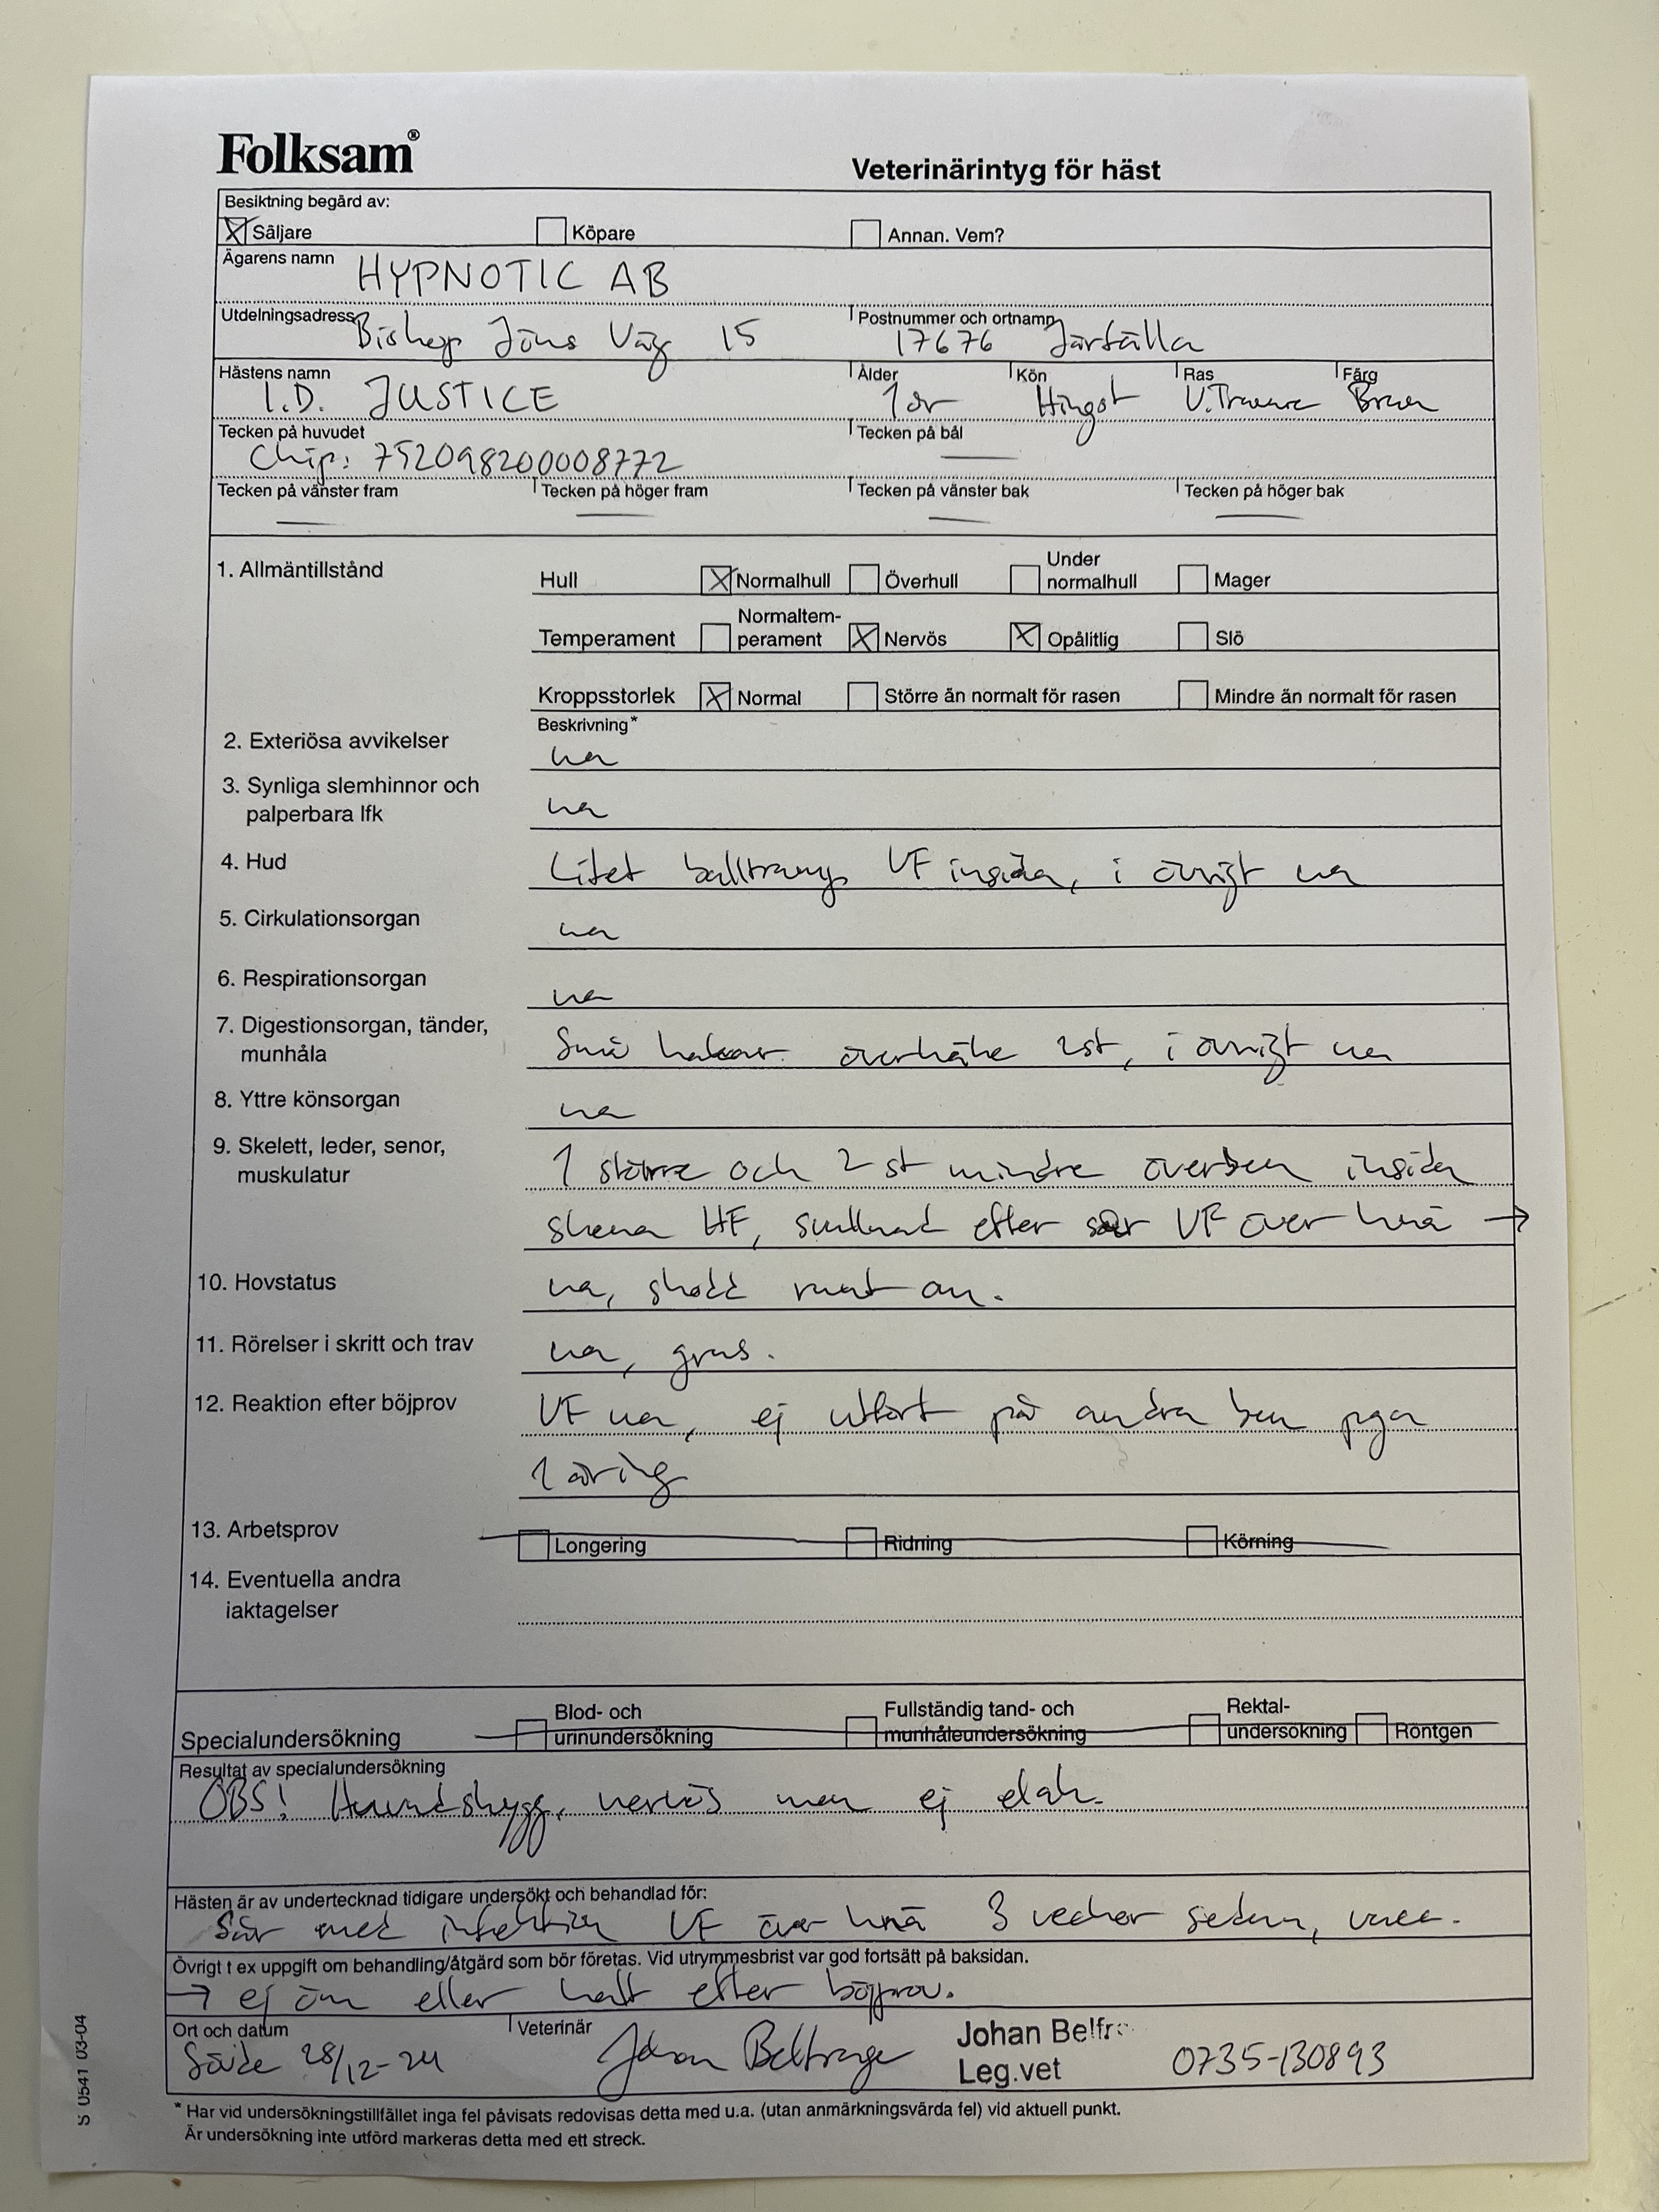 Folksam®
Veterinärintyg för häst
Besiktning begärd av:
Säljare Köpare Annan. Vem?
Ägarens namn HYPNOTIC AB
Utdelningsadress Biskop Jöns Väg 15 Postnummer och ortnamn 17676 Järfälla
Hästens namn I.D. JUSTICE Ålder 1 år Kön Hingst Ras V.Travare Färg Brun
Tecken på huvudet Chip: 752098200008772 Tecken på bål —
Tecken på vänster fram — Tecken på höger fram — Tecken på vänster bak — Tecken på höger bak —
1. Allmäntillstånd Hull Normalhull Överhull Under normalhull Mager
Temperament Normaltem-perament Nervös Opålitlig Slö
Kroppsstorlek Normal Större än normalt för rasen Mindre än normalt för rasen
Beskrivning*
2. Exteriösa avvikelser ua
3. Synliga slemhinnor och
palperbara lfk ua
4. Hud Litet balltramp VF insida, i övrigt ua
5. Cirkulationsorgan ua
6. Respirationsorgan ua
7. Digestionsorgan, tänder,
munhåla Små hakar överkäke 2st, i övrigt ua
8. Yttre könsorgan ua
9. Skelett, leder, senor,
muskulatur 1 större och 2 st mindre överben insida
skena HF, svullnad efter sår VF över knä →
10. Hovstatus ua, skodd runt om.
11. Rörelser i skritt och trav ua, grus.
12. Reaktion efter böjprov VF ua, ej utfört på andra ben pga
1 åring
13. Arbetsprov Longering Ridning Körning
14. Eventuella andra
iaktagelser
Specialundersökning Blod- och urinundersökning Fullständig tand- och munhåleundersökning Rektal-undersökning Röntgen
Resultat av specialundersökning
OBS! Huvudskygg, nervös men ej elak.
Hästen är av undertecknad tidigare undersökt och behandlad för:
Sår med infektion VF över knä 3 veckor sedan,
Övrigt t ex uppgift om behandling/åtgärd som bör företas. Vid utrymmesbrist var god fortsätt på baksidan.
→ ej öm eller halt efter böjprov.
Ort och datum Veterinär Johan Belfr
28/12-24 Johan Belfrage Leg.vet 0735-130893
* Har vid undersökningstillfället inga fel påvisats redovisas detta med u.a. (utan anmärkningsvärda fel) vid aktuell punkt.
Är undersökning inte utförd markeras detta med ett streck.
S 0541 03-04